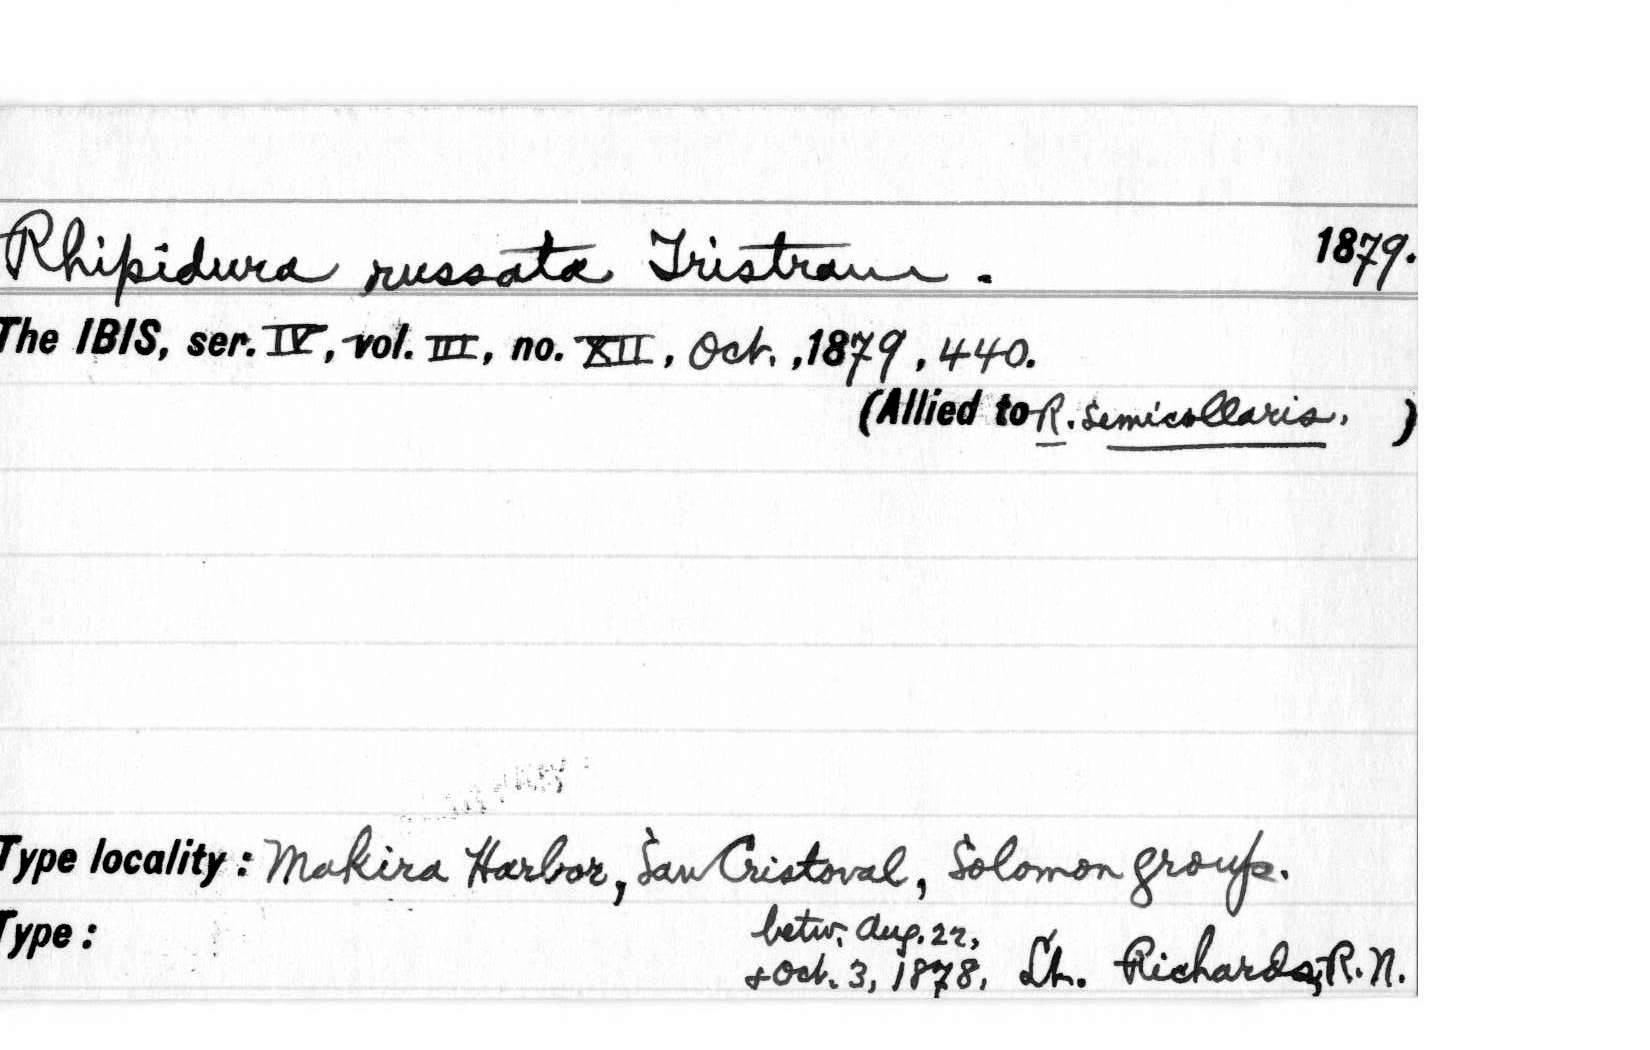 Rhipidura russata Tristram. 1879.
The IBIS, ser. IV, vol. III, no. XII, Oct., 1879, 440.
(Allied to R. semicollaris. )
Type locality: Makira Harbor, San Cristoval, Solomon group.
Type: betw. Aug. 22,
& Oct. 3, 1878, Lt. Richards, R.N.